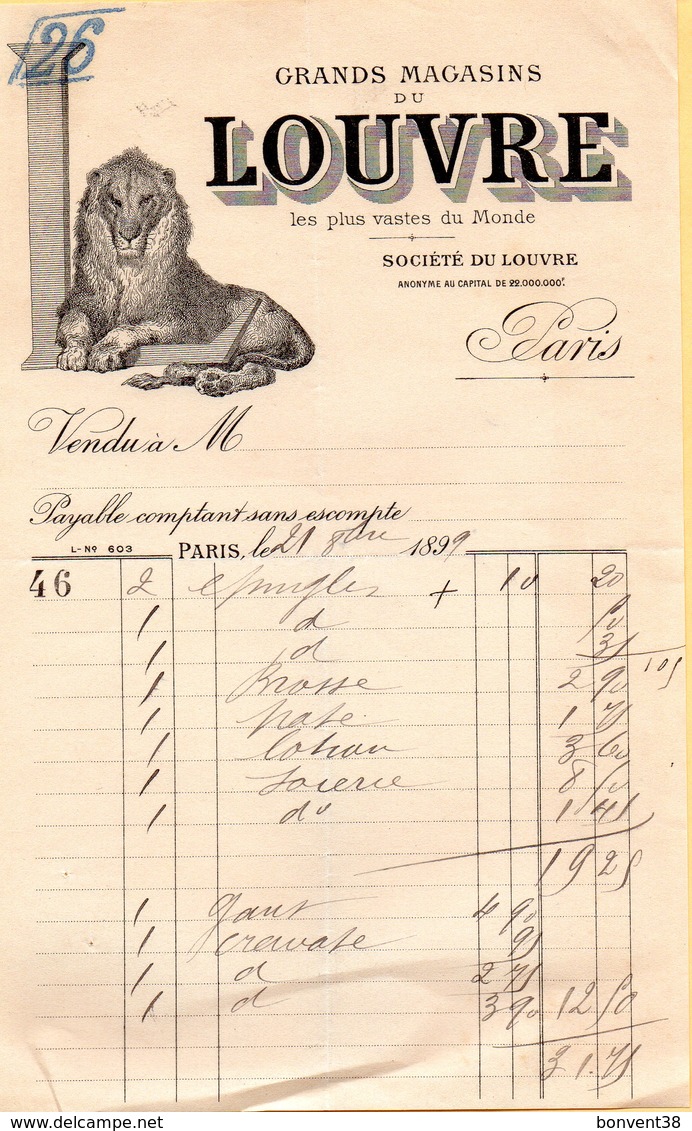 126
GRANDS MAGASINS
DU
LOUVRE
les plus vastes du Monde
SOCIÉTÉ DU LOUVRE
ANONYME AU CAPITAL DE 22.000.000F.
Paris
Vendu à M
Payable comptant sans escompte
L-Nº 603 PARIS, le 21 8bre 1899
46 2 epingles + 10 20
1 d 50
1 d 35
105
1 Brosse 2 90
1 Pate 1 75
1 Lotion 3 60
1 8 50
1 do 1 45
19 25
1 gant 4 90
1 cravate 95
1 d 2 75
1 d 3 90 12 50
31.75
bonvent38